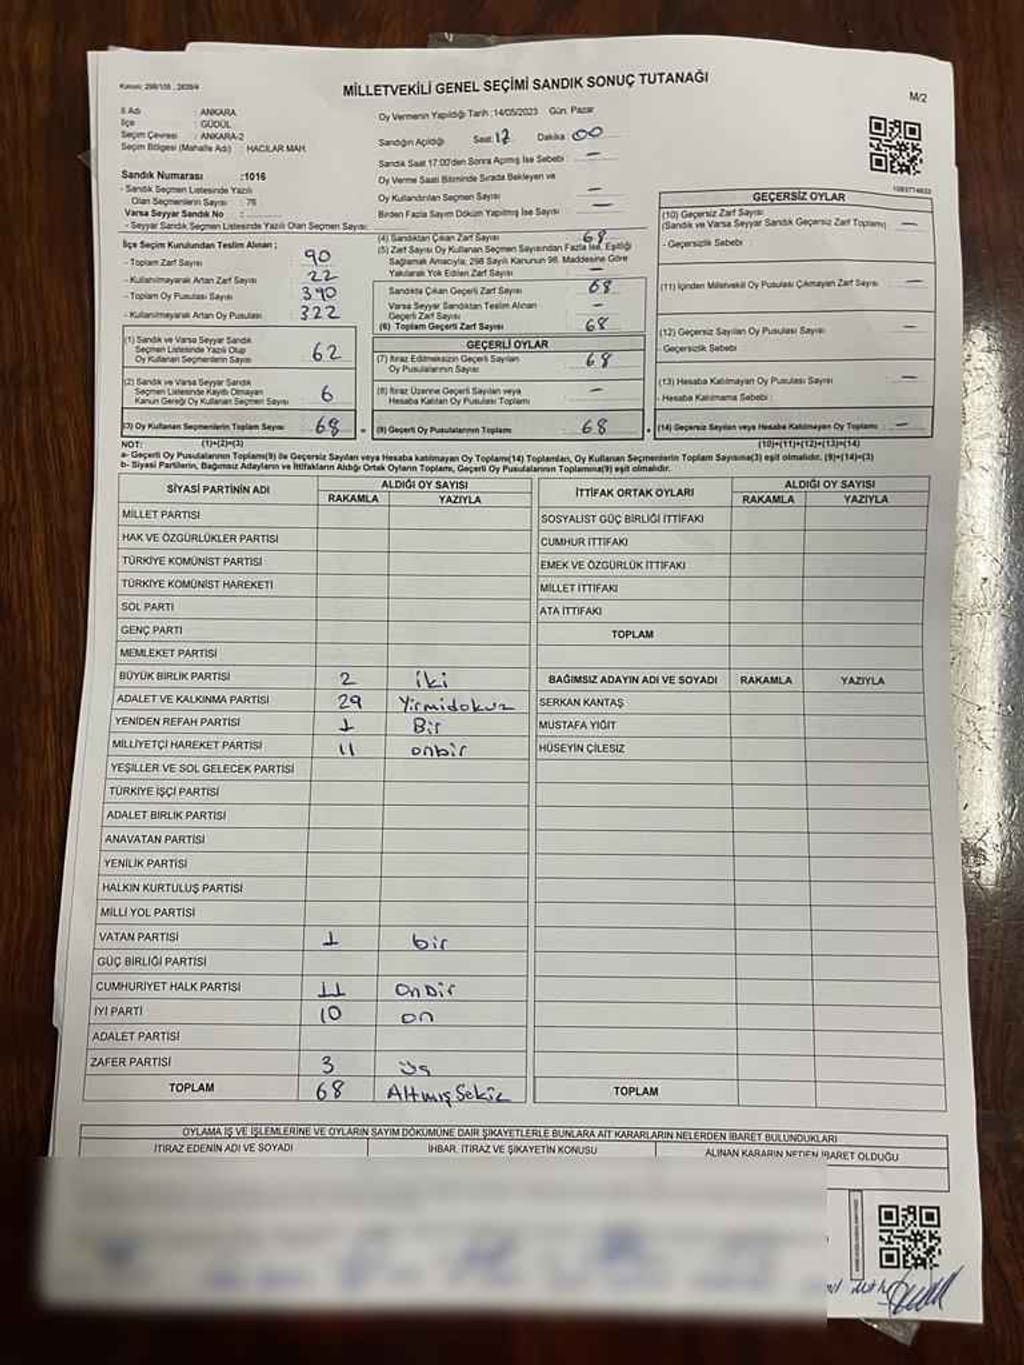 MİLLETVEKİLİ GENEL SEÇİMİ SANDIK SONUÇ TUTANAĞI
M/2
İl Adı : ANKARA
İlçe : GÜDÜL
Seçim Çevresi : ANKARA-2
Seçim Bölgesi (Mahalle Adı) : HACILAR MAH.
Oy Vermenin Yapıldığı Tarih :14/05/2023 Gün: Pazar
Sandığın Açıldığı Saat: 17 Dakika : 00
Sandık Saat 17:00'den Sonra Açılmış İse Sebebi : —
Oy Verme Saati Bitiminde Sırada Bekleyen ve
Oy Kullandırılan Seçmen Sayısı : —
Birden Fazla Sayım Döküm Yapılmış İse Sayısı : —
Sandık Numarası :1016
- Sandık Seçmen Listesinde Yazılı
Olan Seçmenlerin Sayısı : 76
Varsa Seyyar Sandık No :
- Seyyar Sandık Seçmen Listesinde Yazılı Olan Seçmen Sayısı:
İlçe Seçim Kurulundan Teslim Alınan ;
- Toplam Zarf Sayısı : 90
- Kullanılmayarak Artan Zarf Sayısı : 22
- Toplam Oy Pusulası Sayısı : 390
- Kullanılmayarak Artan Oy Pusulası : 322
(1) Sandık ve Varsa Seyyar Sandık
Seçmen Listesinde Yazılı Olup
Oy Kullanan Seçmenlerin Sayısı : 62
(2) Sandık ve Varsa Seyyar Sandık
Seçmen Listesinde Kaydı Olmayan
Kanun Gereği Oy Kullanan Seçmen Sayısı : 6
(3) Oy Kullanan Seçmenlerin Toplam Sayısı : 68
(4) Sandıktan Çıkan Zarf Sayısı : 68
(5) Zarf Sayısı Oy Kullanan Seçmen Sayısından Fazla İse, Eşitliği
Sağlamak Amacıyla; 298 Sayılı Kanunun 98. Maddesine Göre
Yakılarak Yok Edilen Zarf Sayısı : —
Sandıkta Çıkan Geçerli Zarf Sayısı : 68
Varsa Seyyar Sandıktan Teslim Alınan
Geçerli Zarf Sayısı : —
(6) Toplam Geçerli Zarf Sayısı : 68
GEÇERLİ OYLAR
(7) İtiraz Edilmeksizin Geçerli Sayılan
Oy Pusulalarının Sayısı : 68
(8) İtiraz Üzerine Geçerli Sayılan veya
Hesaba Katılan Oy Pusulası Toplamı : —
(9) Geçerli Oy Pusulalarının Toplamı : 68
1083774632
GEÇERSİZ OYLAR
(10) Geçersiz Zarf Sayısı
(Sandık ve Varsa Seyyar Sandık Geçersiz Zarf Toplamı) —
- Geçersizlik Sebebi :
(11) İçinden Milletvekili Oy Pusulası Çıkmayan Zarf Sayısı : —
(12) Geçersiz Sayılan Oy Pusulası Sayısı : —
- Geçersizlik Sebebi :
(13) Hesaba Katılmayan Oy Pusulası Sayısı : —
- Hesaba Katılmama Sebebi :
(14) Geçersiz Sayılan veya Hesaba Katılmayan Oy Toplamı : —
NOT: (1)+(2)=(3) (10)+(11)+(12)+(13)=(14)
a- Geçerli Oy Pusulalarının Toplamı(9) ile Geçersiz Sayılan veya Hesaba katılmayan Oy Toplamı(14) Toplamları, Oy Kullanan Seçmenlerin Toplam Sayısına(3) eşit olmalıdır. (9)+(14)=(3)
b- Siyasi Partilerin, Bağımsız Adayların ve İttifakların Aldığı Ortak Oyların Toplamı, Geçerli Oy Pusulalarının Toplamına(9) eşit olmalıdır.
SİYASİ PARTİNİN ADI ALDIĞI OY SAYISI
RAKAMLA YAZIYLA
MİLLET PARTİSİ
HAK VE ÖZGÜRLÜKLER PARTİSİ
TÜRKİYE KOMÜNİST PARTİSİ
TÜRKİYE KOMÜNİST HAREKETİ
SOL PARTİ
GENÇ PARTİ
MEMLEKET PARTİSİ
BÜYÜK BİRLİK PARTİSİ 2 iki
ADALET VE KALKINMA PARTİSİ 29 Yirmidokuz
YENİDEN REFAH PARTİSİ 1 Bir
MİLLİYETÇİ HAREKET PARTİSİ 11 onbir
YEŞİLLER VE SOL GELECEK PARTİSİ
TÜRKİYE İŞÇİ PARTİSİ
ADALET BİRLİK PARTİSİ
ANAVATAN PARTİSİ
YENİLİK PARTİSİ
HALKIN KURTULUŞ PARTİSİ
MİLLİ YOL PARTİSİ
VATAN PARTİSİ 1 bir
GÜÇ BİRLİĞİ PARTİSİ
CUMHURİYET HALK PARTİSİ 11 onbir
İYİ PARTİ 10 on
ADALET PARTİSİ
ZAFER PARTİSİ 3 üç
TOPLAM 68 Altmış Sekiz
İTTİFAK ORTAK OYLARI ALDIĞI OY SAYISI
RAKAMLA YAZIYLA
SOSYALİST GÜÇ BİRLİĞİ İTTİFAKI
CUMHUR İTTİFAKI
EMEK VE ÖZGÜRLÜK İTTİFAKI
MİLLET İTTİFAKI
ATA İTTİFAKI
TOPLAM
BAĞIMSIZ ADAYIN ADI VE SOYADI RAKAMLA YAZIYLA
SERKAN KANTAŞ
MUSTAFA YİĞİT
HÜSEYİN ÇİLESİZ
TOPLAM
OYLAMA İŞ VE İŞLEMLERİNE VE OYLARIN SAYIM DÖKÜMÜNE DAİR ŞİKAYETLERLE BUNLARA AİT KARARLARIN NELERDEN İBARET BULUNDUKLARI
İTİRAZ EDENİN ADI VE SOYADI İHBAR, İTİRAZ VE ŞİKAYETİN KONUSU ALINAN KARARIN NEDEN İBARET OLDUĞU